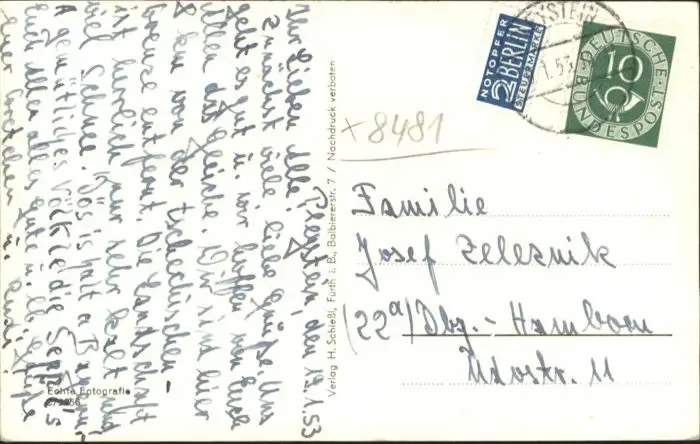 Pleystein, den 19.1.53
Ihr Lieben alle!
Zunächst viele liebe Grüße. Uns
geht es gut u. wir hoffen von Euch
allen das gleiche. Wir sind hier
8 km von der tschechischen
Grenze entfernt. Die Landschaft
ist herrlich nur sehr kalt und
viel Schnee. Dös is halt a
A gemütliches Völkle die
Euch allen alles Gute u. lb. Grüße
Euer Gretchen u. Rudi
Echte Fotografie
Verlag H. Schießl, Fürth i. B., Balbiererstr. 7 / Nachdruck verboten
NOTOPFER
2 BERLIN
STEUERMARKE
YSTEIN
1.53
DEUTSCHE
10
BUNDESPOST
+8481
Familie
Josef Zeleznik
(22a) Dbg.-Hamborn
11